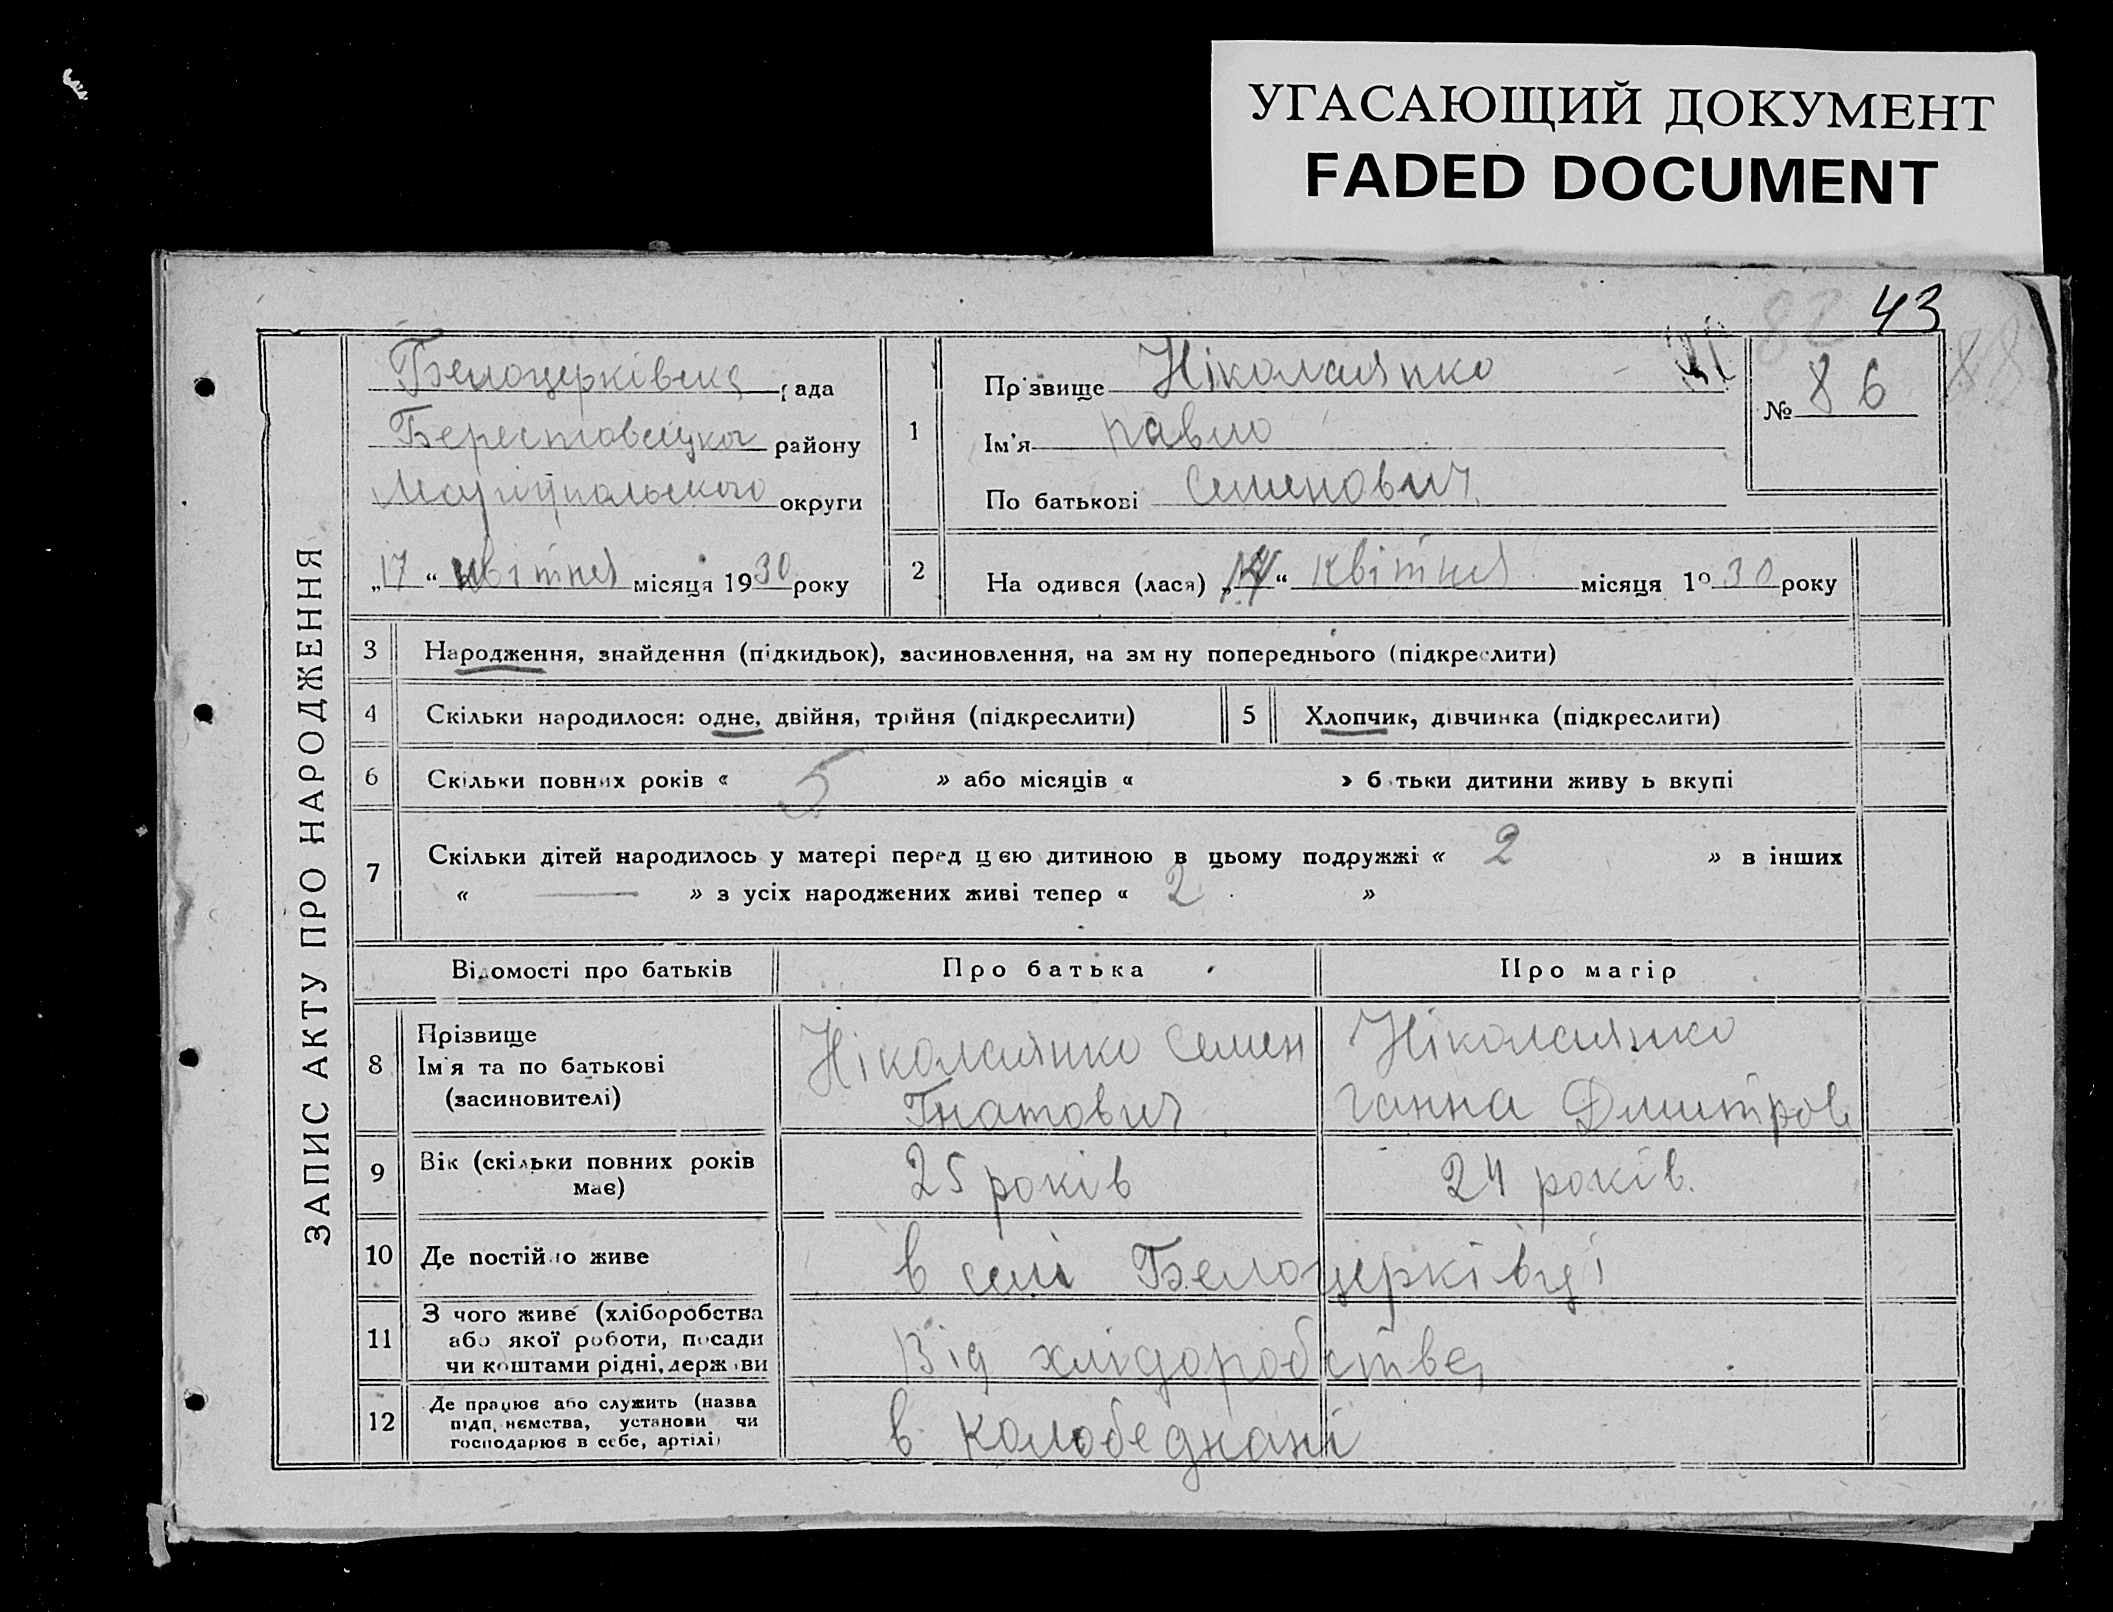 УГАСАЮЩИЙ ДОКУМЕНТ
FADED DOCUMENT
43
82
88
ЗАПИС АКТУ ПРО НАРОДЖЕННЯ
Белоцерківська рада
Берестовецького району
Маріупольського округи
„17“ квітня місяця 1930 року
1
Прізвище Ніколаянко
Ім'я Павло
По батькові Семенович
№ 86
2 На одився (лася) „14“ квітня місяця 1930 року
3 Народження, знайдення (підкидьок), засиновлення, на зм ну попереднього (підкреслити)
4 Скільки народилося: одне, двійня, трійня (підкреслити) 5 Хлопчик, дівчинка (підкреслити)
6 Скільки повних років « 5 » або місяців « » б тьки дитини живу ь вкупі
7 Скільки дітей народилось у матері перед цією дитиною в цьому подружжі « 2 » в інших
« — » з усіх народжених живі тепер « 2 »
Відомості про батьків Про батька Про матір
8 Прізвище
Ім'я та по батькові
(засиновителі)
Ніколаянко Семен
Гнатович
Ніколаянко
Ганна Дмитров
9 Вік (скільки повних років
має)
25 років 24 років.
10 Де постійно живе в селі Белоцерківці
11 З чого живе (хліборобства
або якої роботи, посади
чи коштами рідні, держ ви
Від хлідоробства
12 Де працює або служить (назва
підп, нємства, установи чи
господарює в себе, артілі)
в колобеднані